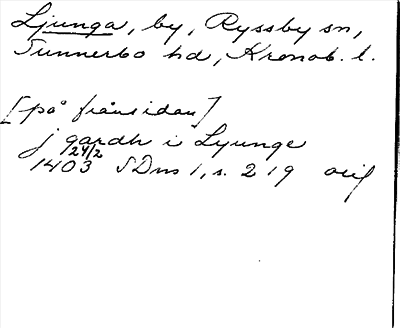 Ljunga, by, Ryssby sn,
Sunnerbo hd, Kronob. l.
[på frånsidan]
j gardh i Lyunge
24/2
1403 SDns 1, s. 219 orig